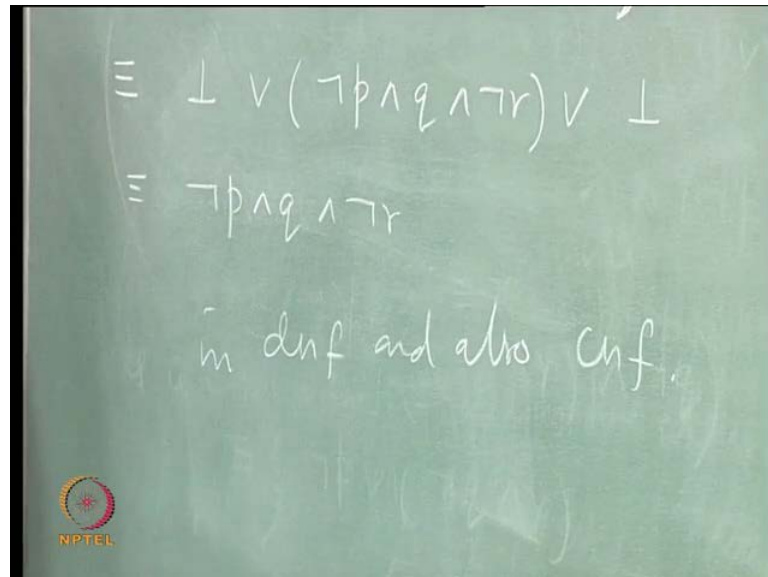 ≡ ⊥ ∨ (¬p ∧ q ∧ ¬r) ∨ ⊥
≡ ¬p ∧ q ∧ ¬r
in dnf and also cnf.
NPTEL